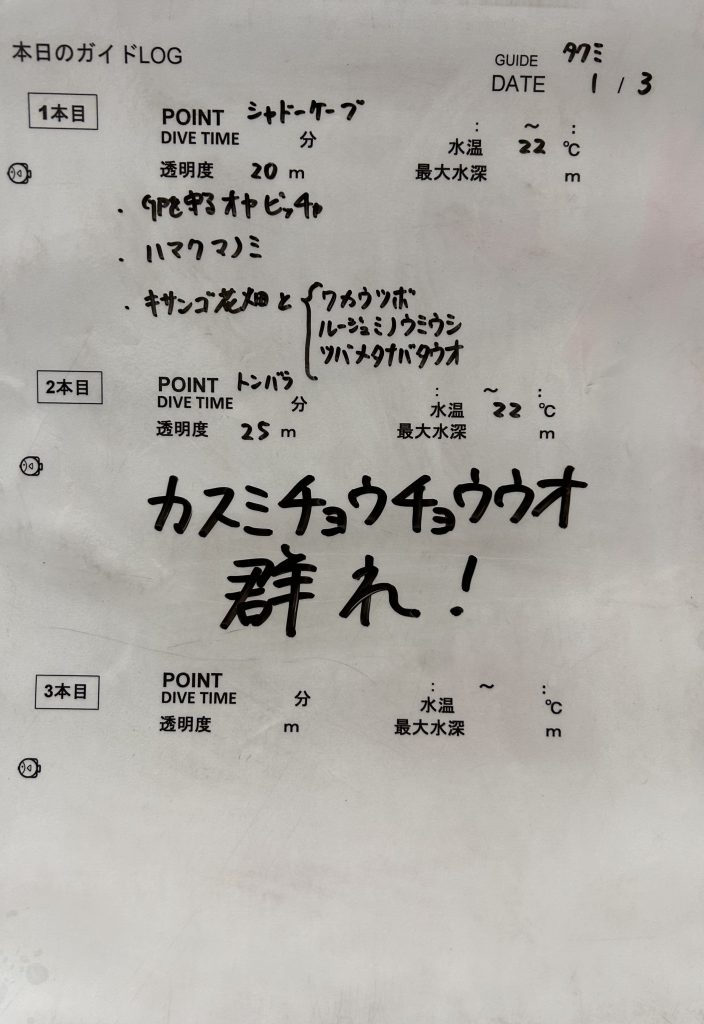 本日のガイドLOG
GUIDE タクミ
DATE 1 / 3
1本目
POINT シャドーケーブ
DIVE TIME 分 : ～ :
水温 22 ℃
透明度 20 m 最大水深 m
・卵を守るオヤビッチャ
・ハマクマノミ
・キサンゴ花畑と ワカウツボ
ルージュミノウミウシ
ツバメタナバタウオ
2本目
POINT トンバラ
DIVE TIME 分 : ～ :
水温 22 ℃
透明度 25 m 最大水深 m
カスミチョウチョウウオ
群れ!
3本目
POINT
DIVE TIME 分 : ～ :
水温 ℃
透明度 m 最大水深 m